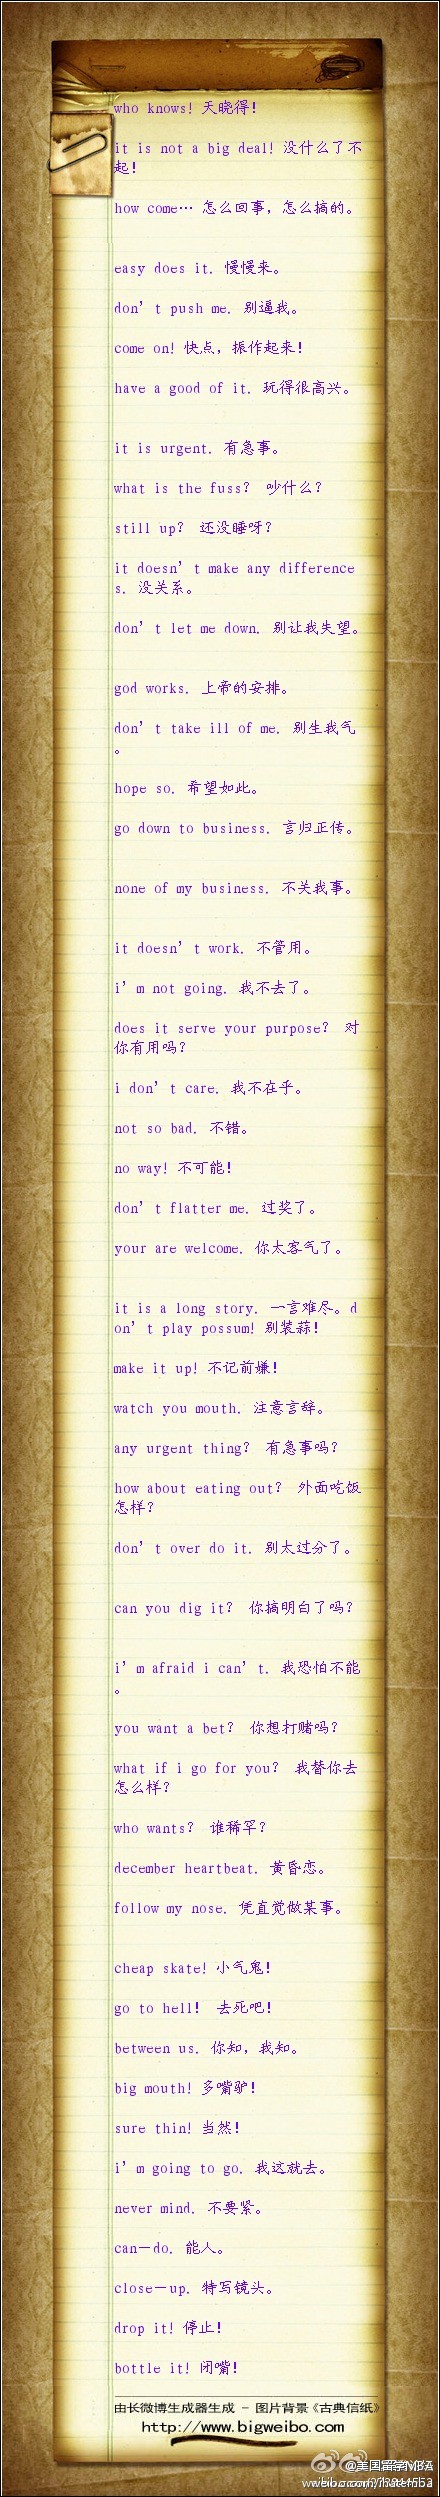 who knows! 天晓得!
it is not a big deal! 没什么了不
起!
how come… 怎么回事，怎么搞的。
easy does it. 慢慢来。
don’t push me. 别逼我。
come on! 快点，振作起来!
have a good of it. 玩得很高兴。
it is urgent. 有急事。
what is the fuss? 吵什么?
still up? 还没睡呀?
it doesn’t make any difference
s. 没关系。
don’t let me down. 别让我失望。
god works. 上帝的安排。
don’t take ill of me. 别生我气
。
hope so. 希望如此。
go down to business. 言归正传。
none of my business. 不关我事。
it doesn’t work. 不管用。
i’m not going. 我不去了。
does it serve your purpose? 对
你有用吗?
i don’t care. 我不在乎。
not so bad. 不错。
no way! 不可能!
don’t flatter me. 过奖了。
your are welcome. 你太客气了。
it is a long story. 一言难尽。d
on’t play possum! 别装蒜!
make it up! 不记前嫌!
watch you mouth. 注意言辞。
any urgent thing? 有急事吗?
how about eating out? 外面吃饭
怎样?
don’t over do it. 别太过分了。
can you dig it? 你搞明白了吗?
i’m afraid i can’t. 我恐怕不能
。
you want a bet? 你想打赌吗?
what if i go for you? 我替你去
怎么样?
who wants? 谁稀罕?
december heartbeat. 黄昏恋。
follow my nose. 凭直觉做某事。
cheap skate! 小气鬼!
go to hell! 去死吧!
between us. 你知，我知。
big mouth! 多嘴驴!
sure thin! 当然!
i’m going to go. 我这就去。
never mind. 不要紧。
can—do. 能人。
close—up. 特写镜头。
drop it! 停止!
bottle it! 闭嘴!
由长微博生成器生成 - 图片背景《古典信纸》
http://www.bigweibo.com
@美国留学MBA
weibo.com/hatemba